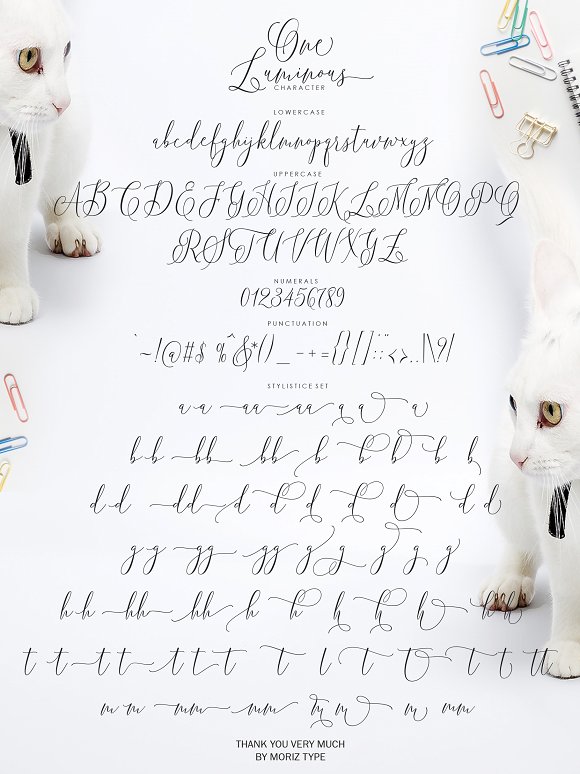 One
Luminous
CHARACTER
LOWERCASE
abcdefghijklmnopqrstuvwxyz
UPPERCASE
ABCDEFGHIJKLMNOPQ
RSTUVWXYZ
NUMERALS
0123456789
PUNCTUATION
`~!@#$ %^&*()_ -+={}[]:;<>,.|\?/
STYLISTICE SET
a a aa aa a a a
b b bb bb b b b b b
d d dd d d d d d d d
g g gg gg g g g g g
h h hh hh h h h h h h h
t t tt tt t t t t t t t tt
m m mm mm m m m mm
THANK YOU VERY MUCH
BY MORIZ TYPE